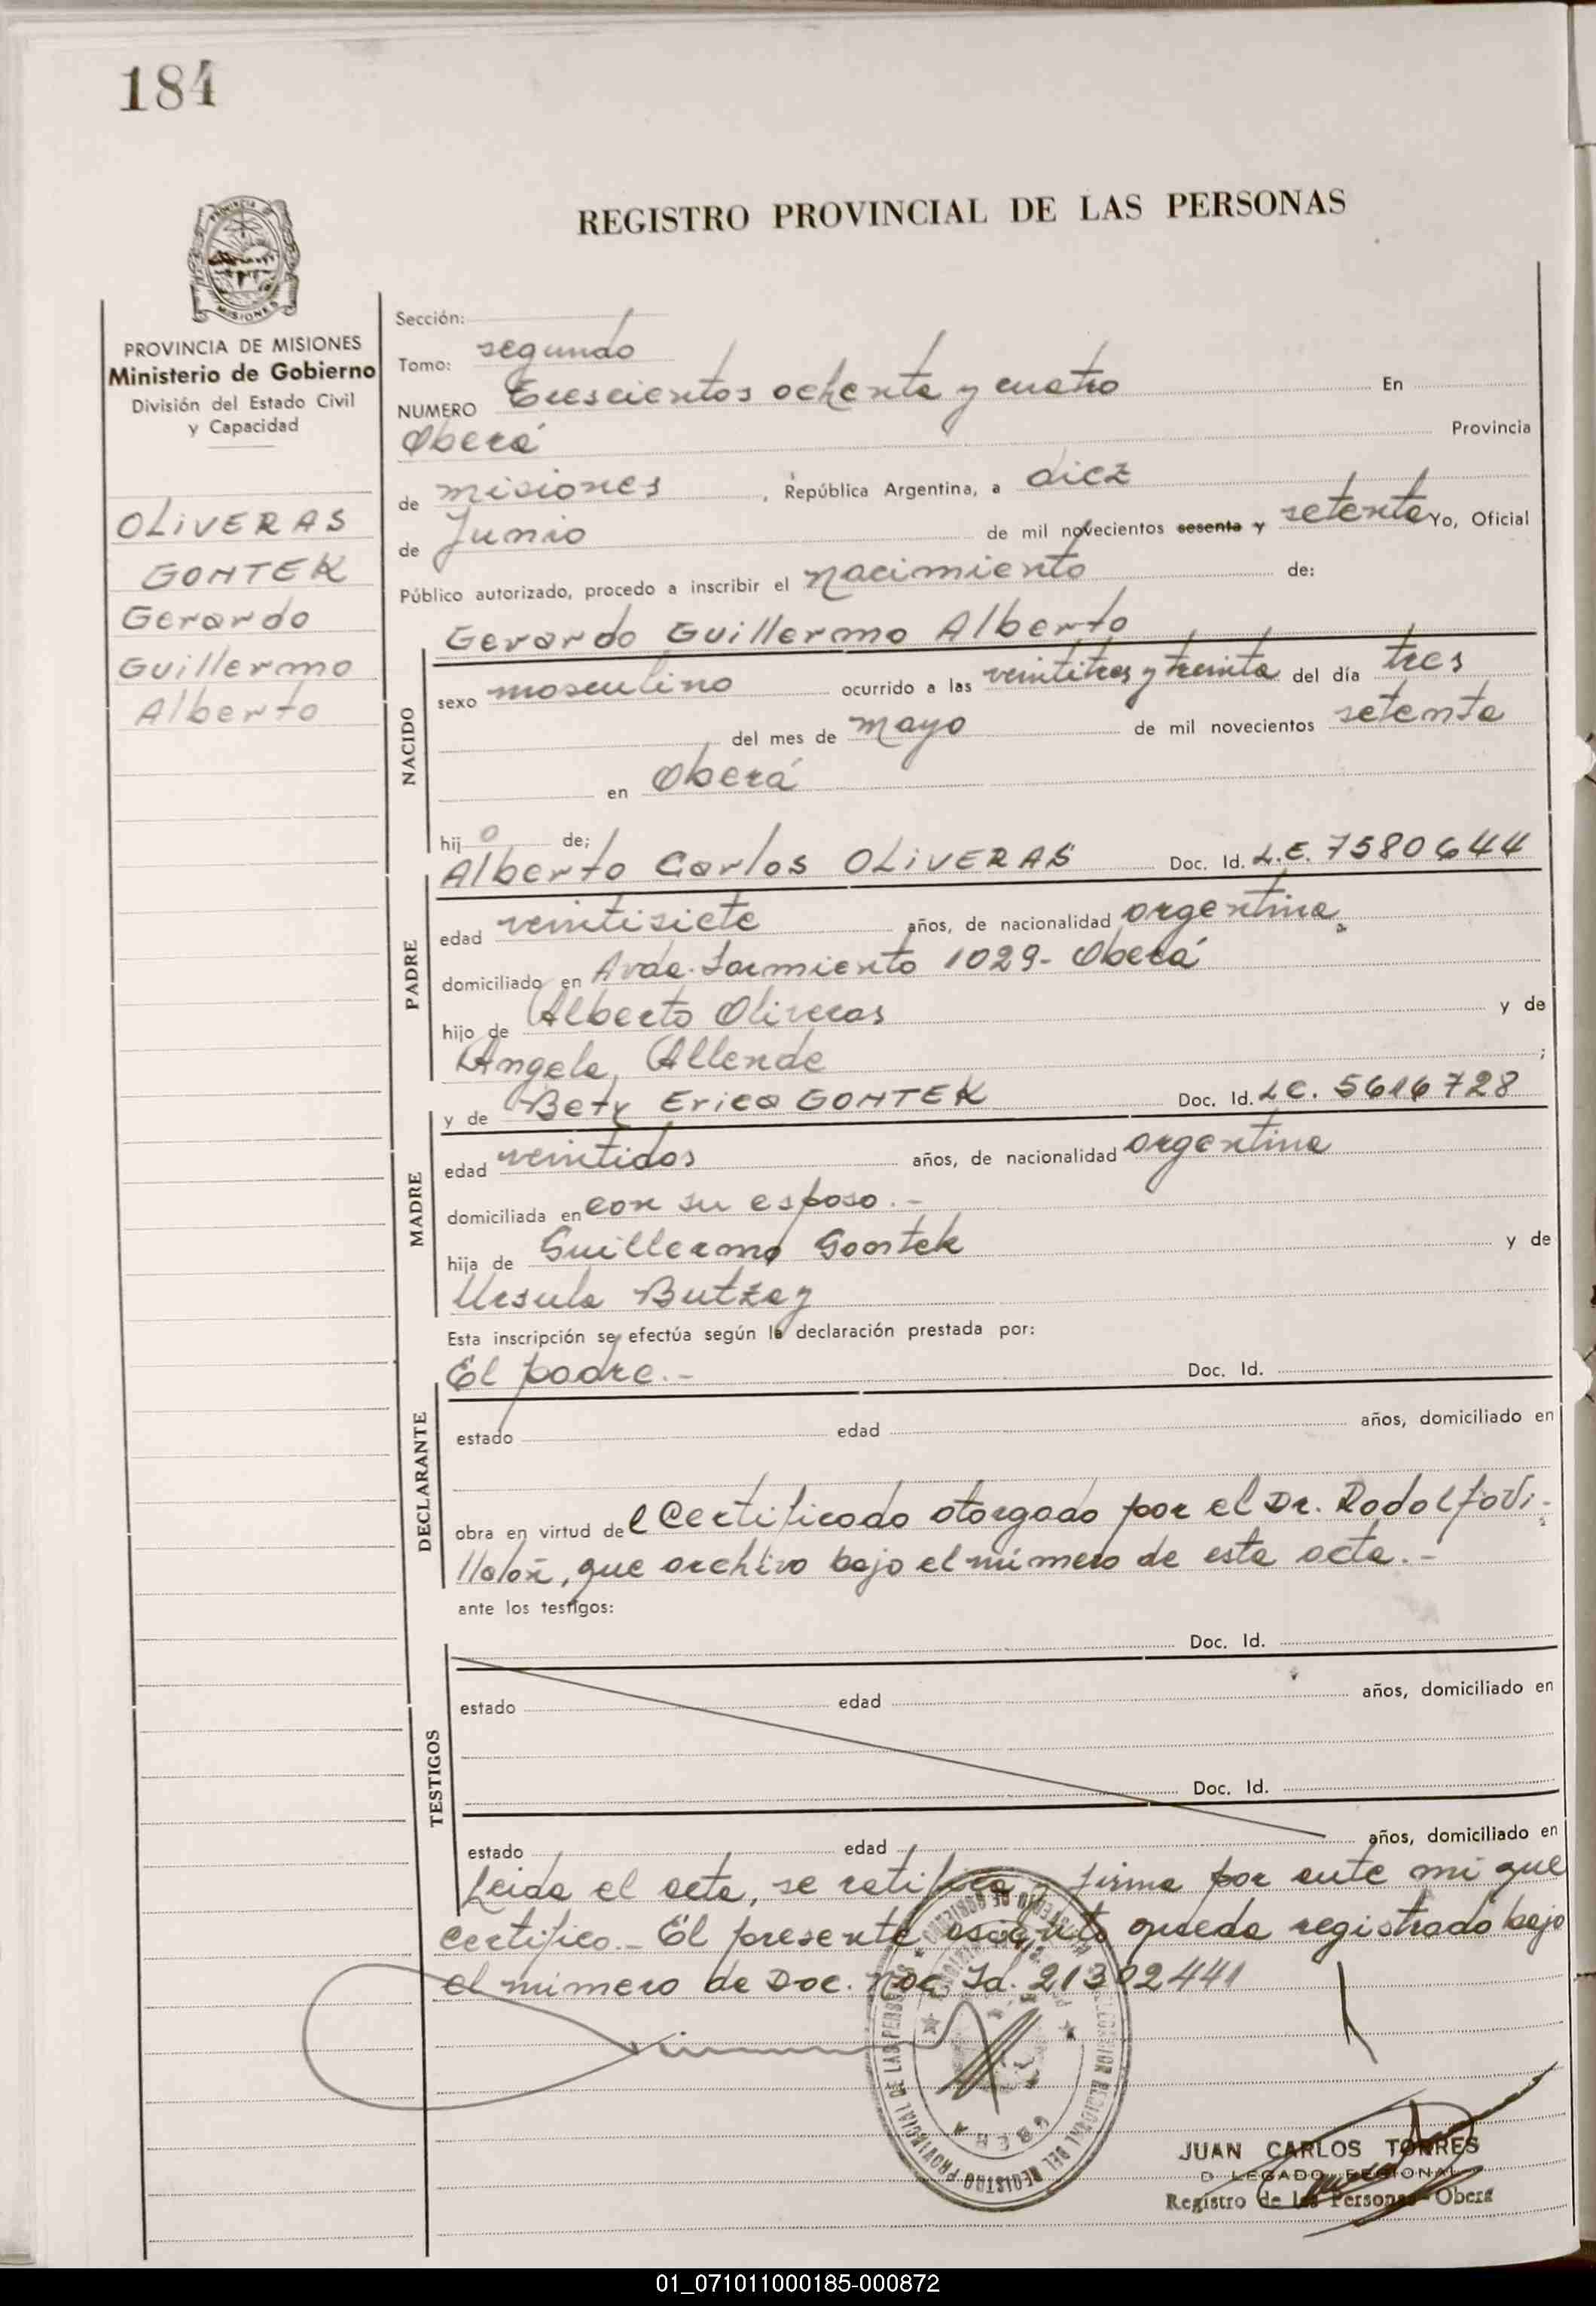 184
REGISTRO PROVINCIAL DE LAS PERSONAS
PROVINCIA DE MISIONES
Ministerio de Gobierno
División del Estado Civil
y Capacidad
OLIVERAS
GONTEK
Gerardo
Guillermo
Alberto
Sección:
Tomo: segundo
NUMERO Trescientos ochenta y cuatro En
Oberá Provincia
de misiones, República Argentina, a diez
de Junio de mil novecientos sesenta y setenta Yo, Oficial
Público autorizado, procedo a inscribir el nacimiento de:
Gerardo Guillermo Alberto
NACIDO
sexo masculino ocurrido a las veintitres y treinta del día tres
del mes de mayo de mil novecientos setenta
en Oberá
hijo de;
Alberto Carlos OLIVERAS Doc. Id. L.E. 7580644
PADRE
edad veintisiete años, de nacionalidad argentina
domiciliado en Avda. Sarmiento 1029- Oberá
hijo de Alberto Oliveras y de
Angela Allende ;
y de Bety Erica GONTEK Doc. Id. LC. 5616728
MADRE
edad veintidos años, de nacionalidad argentina
domiciliada en con su esposo.-
hija de Guillermo Gontek y de
Ursula Butzay
Esta inscripción se efectúa según la declaración prestada por:
El padre.- Doc. Id.
DECLARANTE
estado edad años, domiciliado en
obra en virtud del certificado otorgado por el Dr. Rodolfo Vi-
llalón, que archivo bajo el número de esta acta.-
ante los testigos:
Doc. Id.
TESTIGOS
estado edad años, domiciliado en
Doc. Id.
estado edad años, domiciliado en
Leida el acta, se ratifica y firma por ante mi que
certifico.- El presente asiento queda registrado bajo
el número de Doc. Nac. Id. 21302441
OBERA
JUAN CARLOS TORRES
D LEGADO REGIONAL
Registro de las Personas - Oberá
01_071011000185-000872